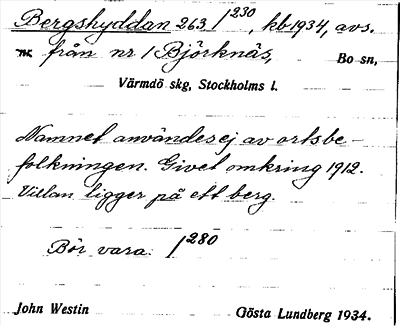 Bergshyddan 263/1²³⁰, kb 1934, avs.
från nr 1 Björknäs, Bo sn,
Värmdö skg, Stockholms l.
Namnet användes ej av ortsbe-
folkningen. Givet omkring 1912.
Villan ligger på ett berg.
Bör vara: 1²⁸⁰
John Westin Gösta Lundberg 1934.